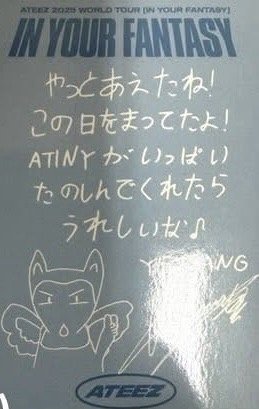 ATEEZ 2025 WORLD TOUR [IN YOUR FANTASY]
IN YOUR FANTASY
やっとあえたね!
この日をまってたよ!
ATINYがいっぱい
たのしんでくれたら
うれしいな♪
ATEEZ